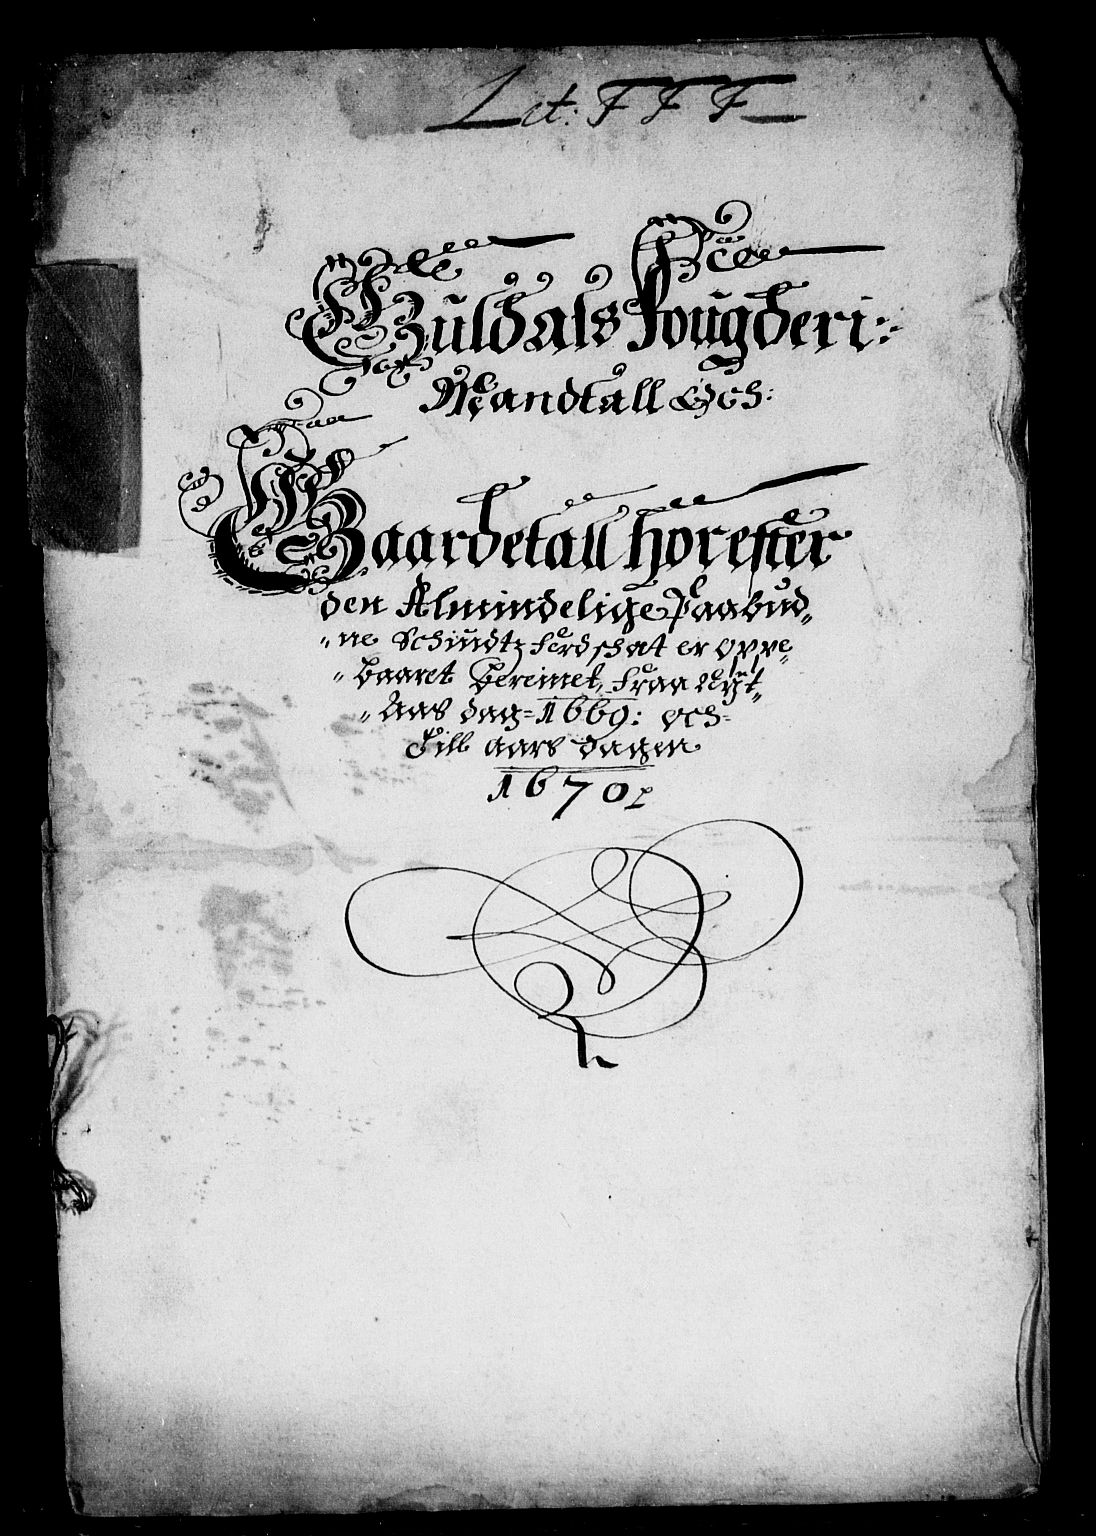 Lit: F F F
Guldals fougderi:
Mandtall Och:
Gaardetall horefter
den Almindelige Paabud„
„ne Schindtz ferdschat er oppe„
„baaret Bereinet, Fraa Nyt„
„Aas dag 1669: och
Till aars dagen
1670